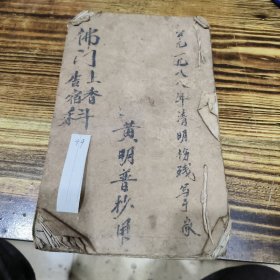 公元一九八八年清明伤残写于家
佛门上香科
告宿科
黄明晋抄用